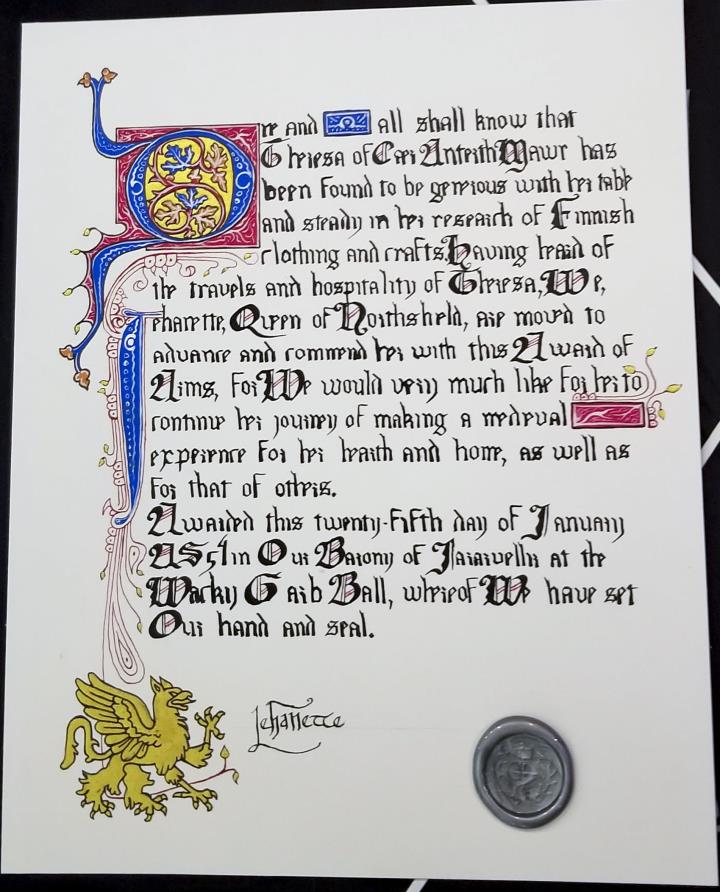 One and all shall know that
Theresa of Caer Anterth Mawr has
been found to be generous with her table
and steady in her research of Finnish
clothing and crafts, Having heard of
the travels and hospitality of Theresa, We,
Lehanette, Queen of Northshield, are moved to
advance and commend her with this Award of
Arms, For We would very much like for her to
continue her journey of making a medieval
experience for her hearth and home, as well as
for that of others.
Awarded this twenty-fifth day of January
AS 51 in Our Barony of Jararvellir at the
Wacky Garb Ball, whereof We have set
Our hand and seal.
Lehanette